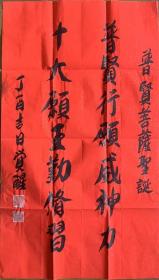 普賢菩薩聖誕
普賢行願威神力
十大願王勤脩習
丁酉吉日覺醒